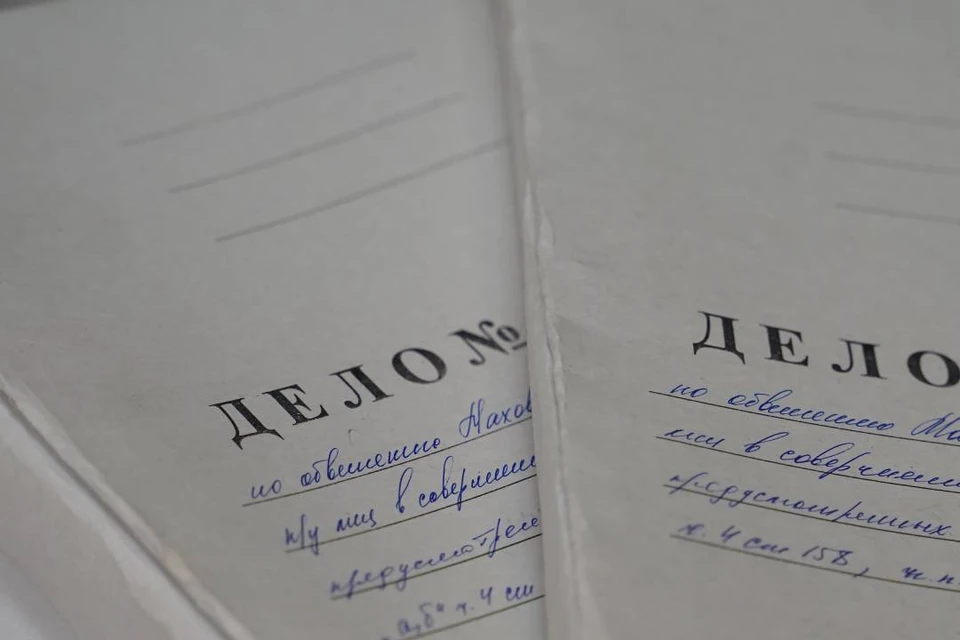 ДЕЛО №
по обвинению Махов
н/у лиц в совершении
предусмотрен
а,б" ч. 4 ст
ДЕЛО
по обвинению Ма
лиц в совершении
предусмотренных
ч. 4 ст 158, ч.ч.